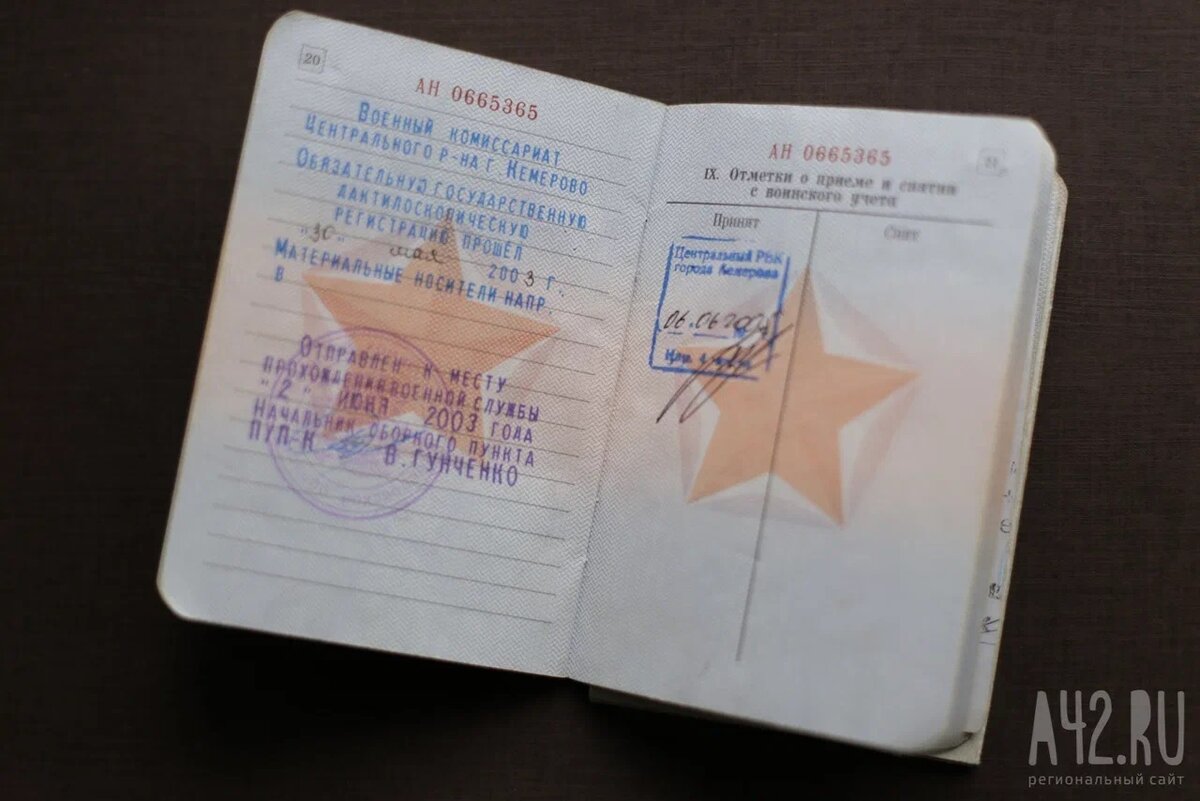 20
АН 0665365
ВОЕННЫЙ КОМИССАРИАТ
ЦЕНТРАЛЬНОГО Р-НА Г. КЕМЕРОВО
ОБЯЗАТЕЛЬНУЮ ГОСУДАРСТВЕННУЮ
ДАКТИЛОСКОПИЧЕСКУЮ
РЕГИСТРАЦИЮ ПРОШЁЛ
"30" мая 2003 Г.
МАТЕРИАЛЬНЫЕ НОСИТЕЛИ НАПР.
В
ОТПРАВЛЕН К МЕСТУ
ПРОХОЖДЕНИЯ ВОЕННОЙ СЛУЖБЫ
"2" ИЮНЯ 2003 ГОДА
НАЧАЛЬНИК СБОРНОГО ПУНКТА
П/П-К В. ГУНЧЕНКО
АН 0665365
IX. Отметки о приеме и снятии
с воинского учета
Принят Снят
Центральный РВК
города Кемерова
06.06
А42.RU
региональный сайт